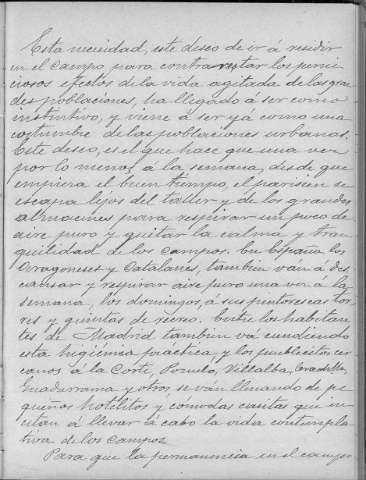 Esta necesidad, este deseo de ir á residir
en el campo, para contrarrestar los perni-
ciosos efectos de la vida agitada de las gran
des poblaciones, ha llegado á ser como
instintivo, y viene á ser ya como una
costumbre de las poblaciones urbanas.
Este deseo, es el que hace que una vez
por lo menos, á la semana, desde que
empieza el buen tiempo, el parisien se
escapa lejos del taller y de los grandes
almacines para respirar un poco de
aire puro y gustar la calma y tran
quilidad de los campos. En España los
Aragoneses y Catalanes, tambien van á des
cansar y respirar aire puro una vez á la
semana, los domingos, á sus pintorescas tor
res y quintas de recreo. Entre los habitan
tes de Madrid tambien vá cundiendo
esta higiénica practica, y los pueblecitos cer
canos á la Corte, Pozuelo, Villalba,
Guadarrama y otros se ván llenando de pe
queños hotelitos y cómodas casitas que in
citan á llevar á cabo la vida contempla
tiva de los campos
Para que la permanencia en el campo